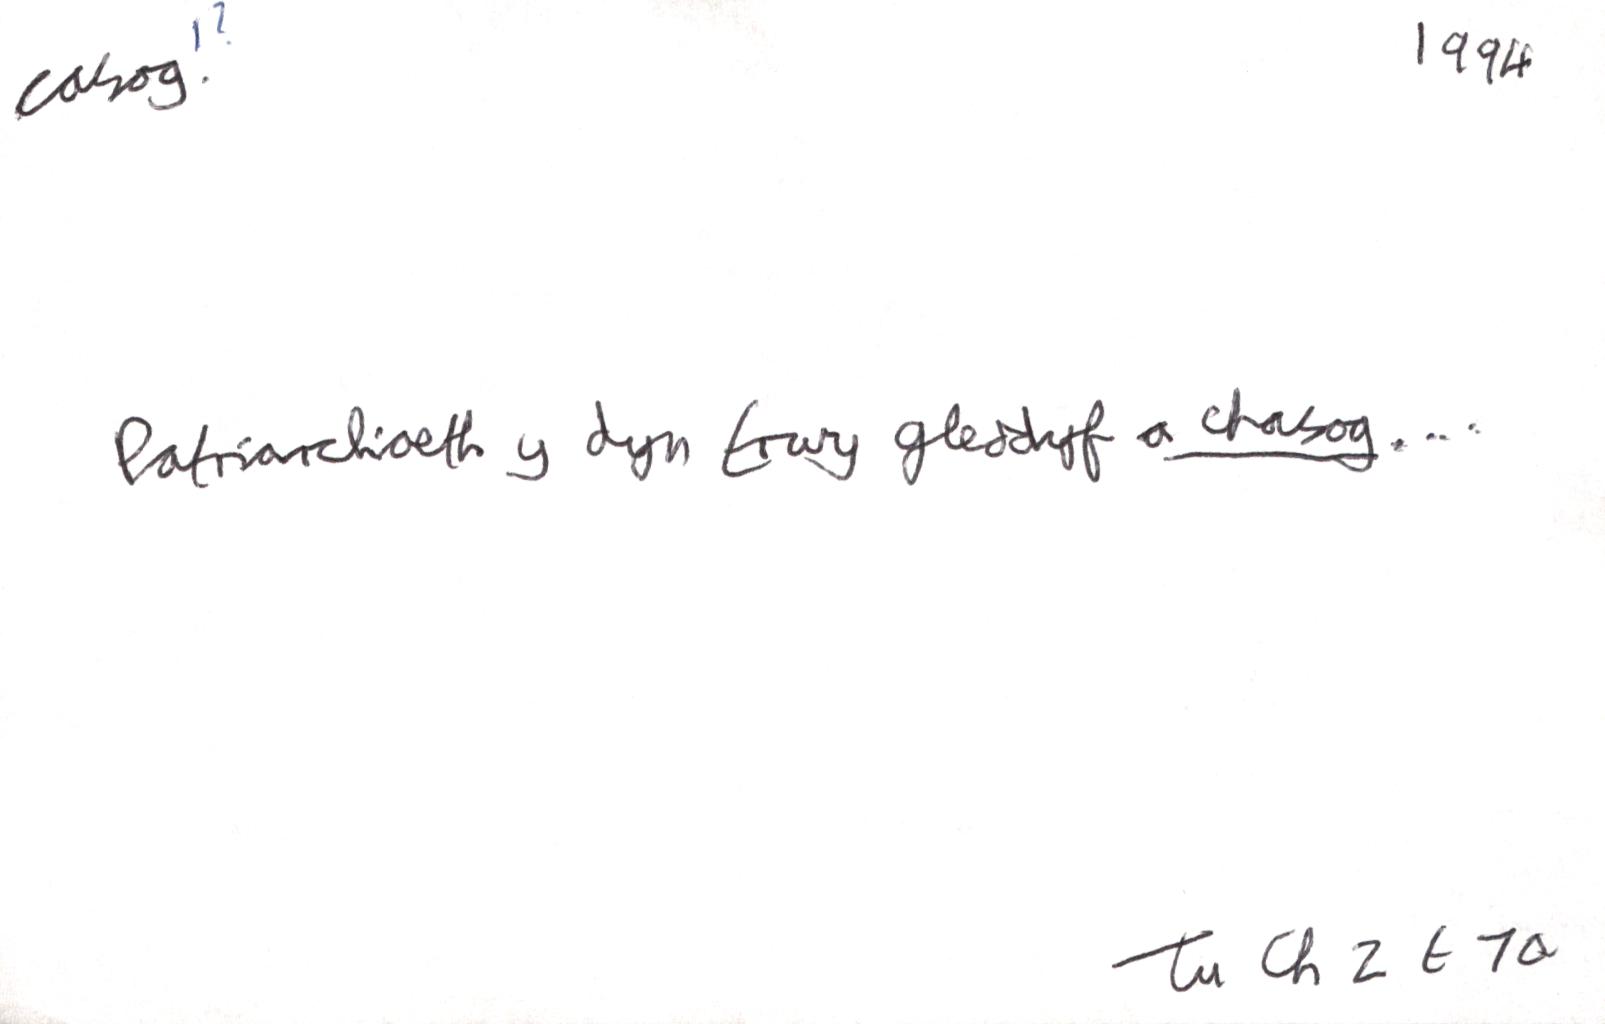 casog. 1?
1994
Patriarchiaeth y dyn trwy gleddyf a chasog....
Tu Ch 2 t 7a